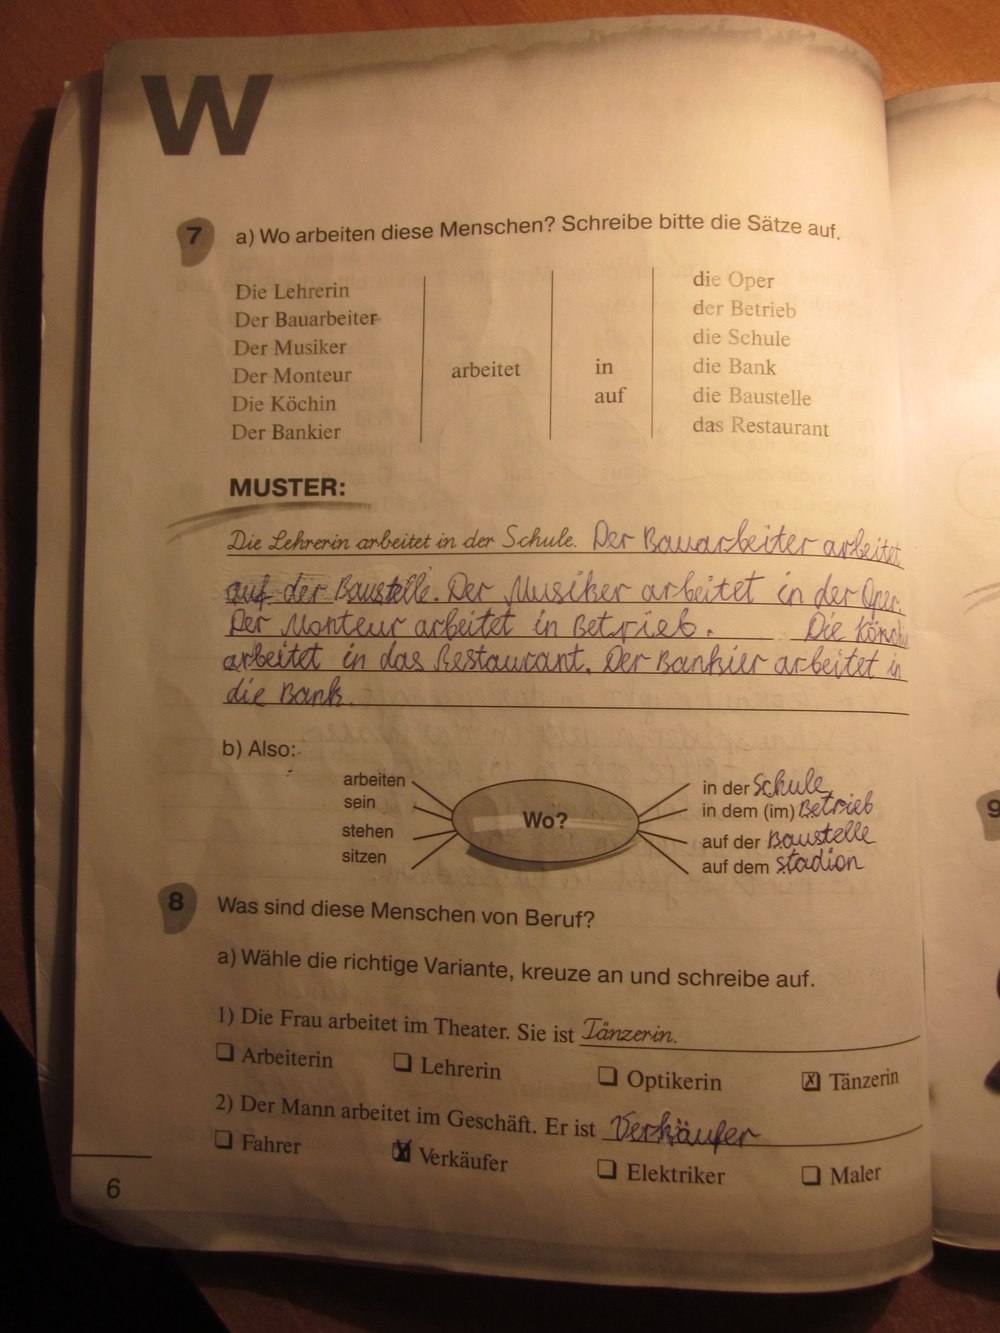 W
7 a) Wo arbeiten diese Menschen? Schreibe bitte die Sätze auf.
Die Lehrerin
Der Bauarbeiter
Der Musiker
Der Monteur
Die Köchin
Der Bankier
arbeitet
in
auf
die Oper
der Betrieb
die Schule
die Bank
die Baustelle
das Restaurant
MUSTER:
Die Lehrerin arbeitet in der Schule. Der Bauarbeiter arbeitet
auf der Baustelle. Der Musiker arbeitet in der Oper.
Der Monteur arbeitet in Betrieb. Die
arbeitet in das Restaurant. Der Bankier arbeitet in
die Bank.
b) Also:
arbeiten
sein
stehen
sitzen
Wo?
in der Schule
in dem (im) Betrieb
auf der Baustelle
auf dem Stadion
8 Was sind diese Menschen von Beruf?
a) Wähle die richtige Variante, kreuze an und schreibe auf.
1) Die Frau arbeitet im Theater. Sie ist Tänzerin.
Arbeiterin Lehrerin Optikerin Tänzerin
2) Der Mann arbeitet im Geschäft. Er ist Verkäufer
Fahrer Verkäufer Elektriker Maler
6
9